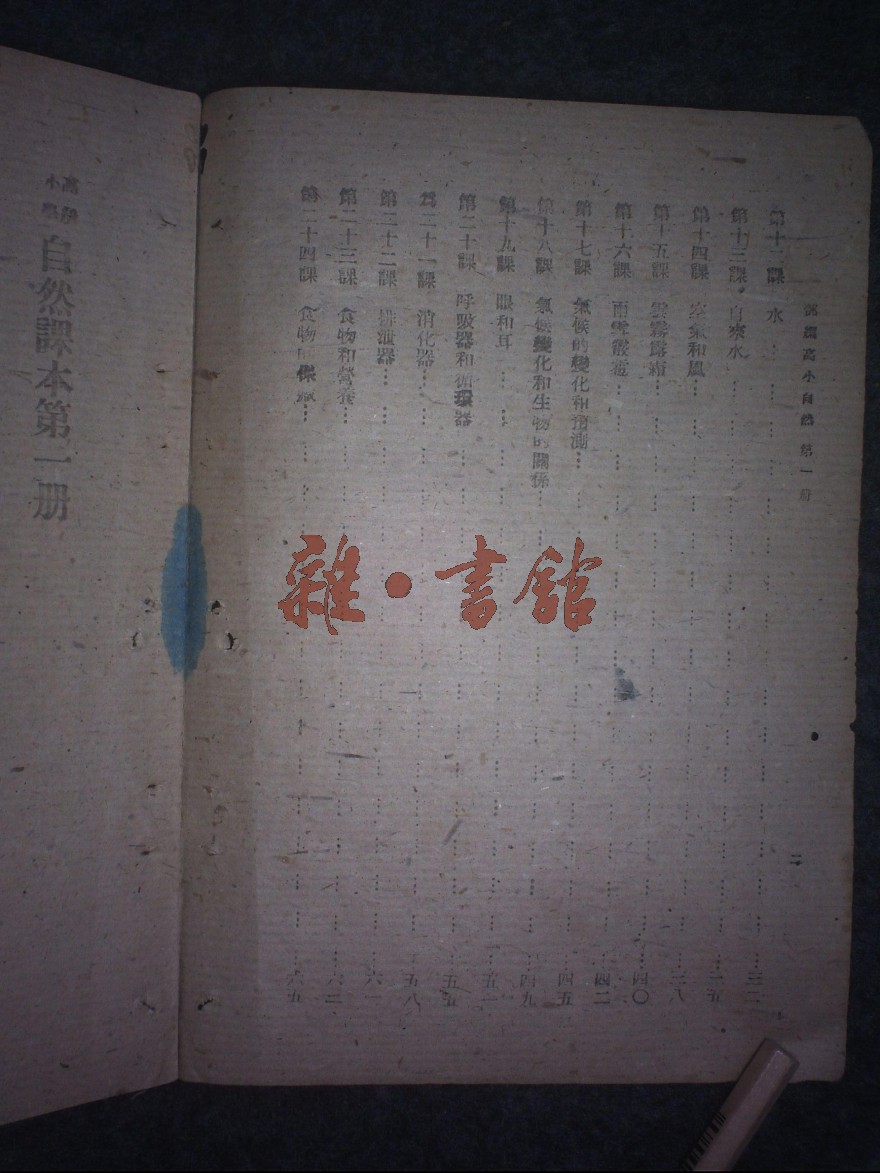 高小自然 第一册
二
第十二課 水 ……三二
第十三課 自來水 ……三五
第十四課 空氣和風 ……三八
第十五課 雲霧露霜 ……四〇
第十六課 雨雪霰雹 ……四二
第十七課 氣候的變化和預測 ……四五
第十八課 氣候變化和生物的關係 ……四九
第十九課 眼和耳 ……五一
第二十課 呼吸器和循環器 ……五五
第二十一課 消化器 ……五八
第二十二課 排泄器 ……六一
第二十三課 食物和營養 ……
第二十四課 食物的保藏 ……六五
高級小學 自然課本第一册
雜·書館